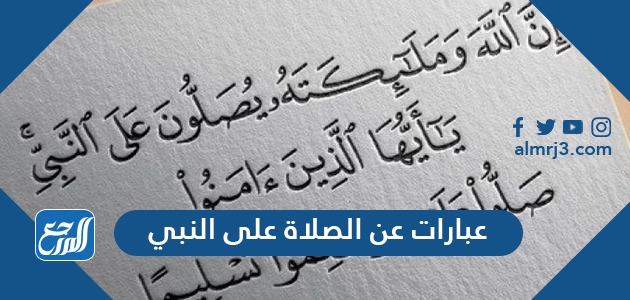 إِنَّ ٱللَّهَ وَمَلَـٰٓئِكَتَهُۥ يُصَلُّونَ عَلَى ٱلنَّبِىِّ ۚ
يَـٰٓأَيُّهَا ٱلَّذِينَ ءَامَنُوا۟
صَلُّوا۟
تَسْلِيمًا
almrj3.com
عبارات عن الصلاة على النبي
المرجع